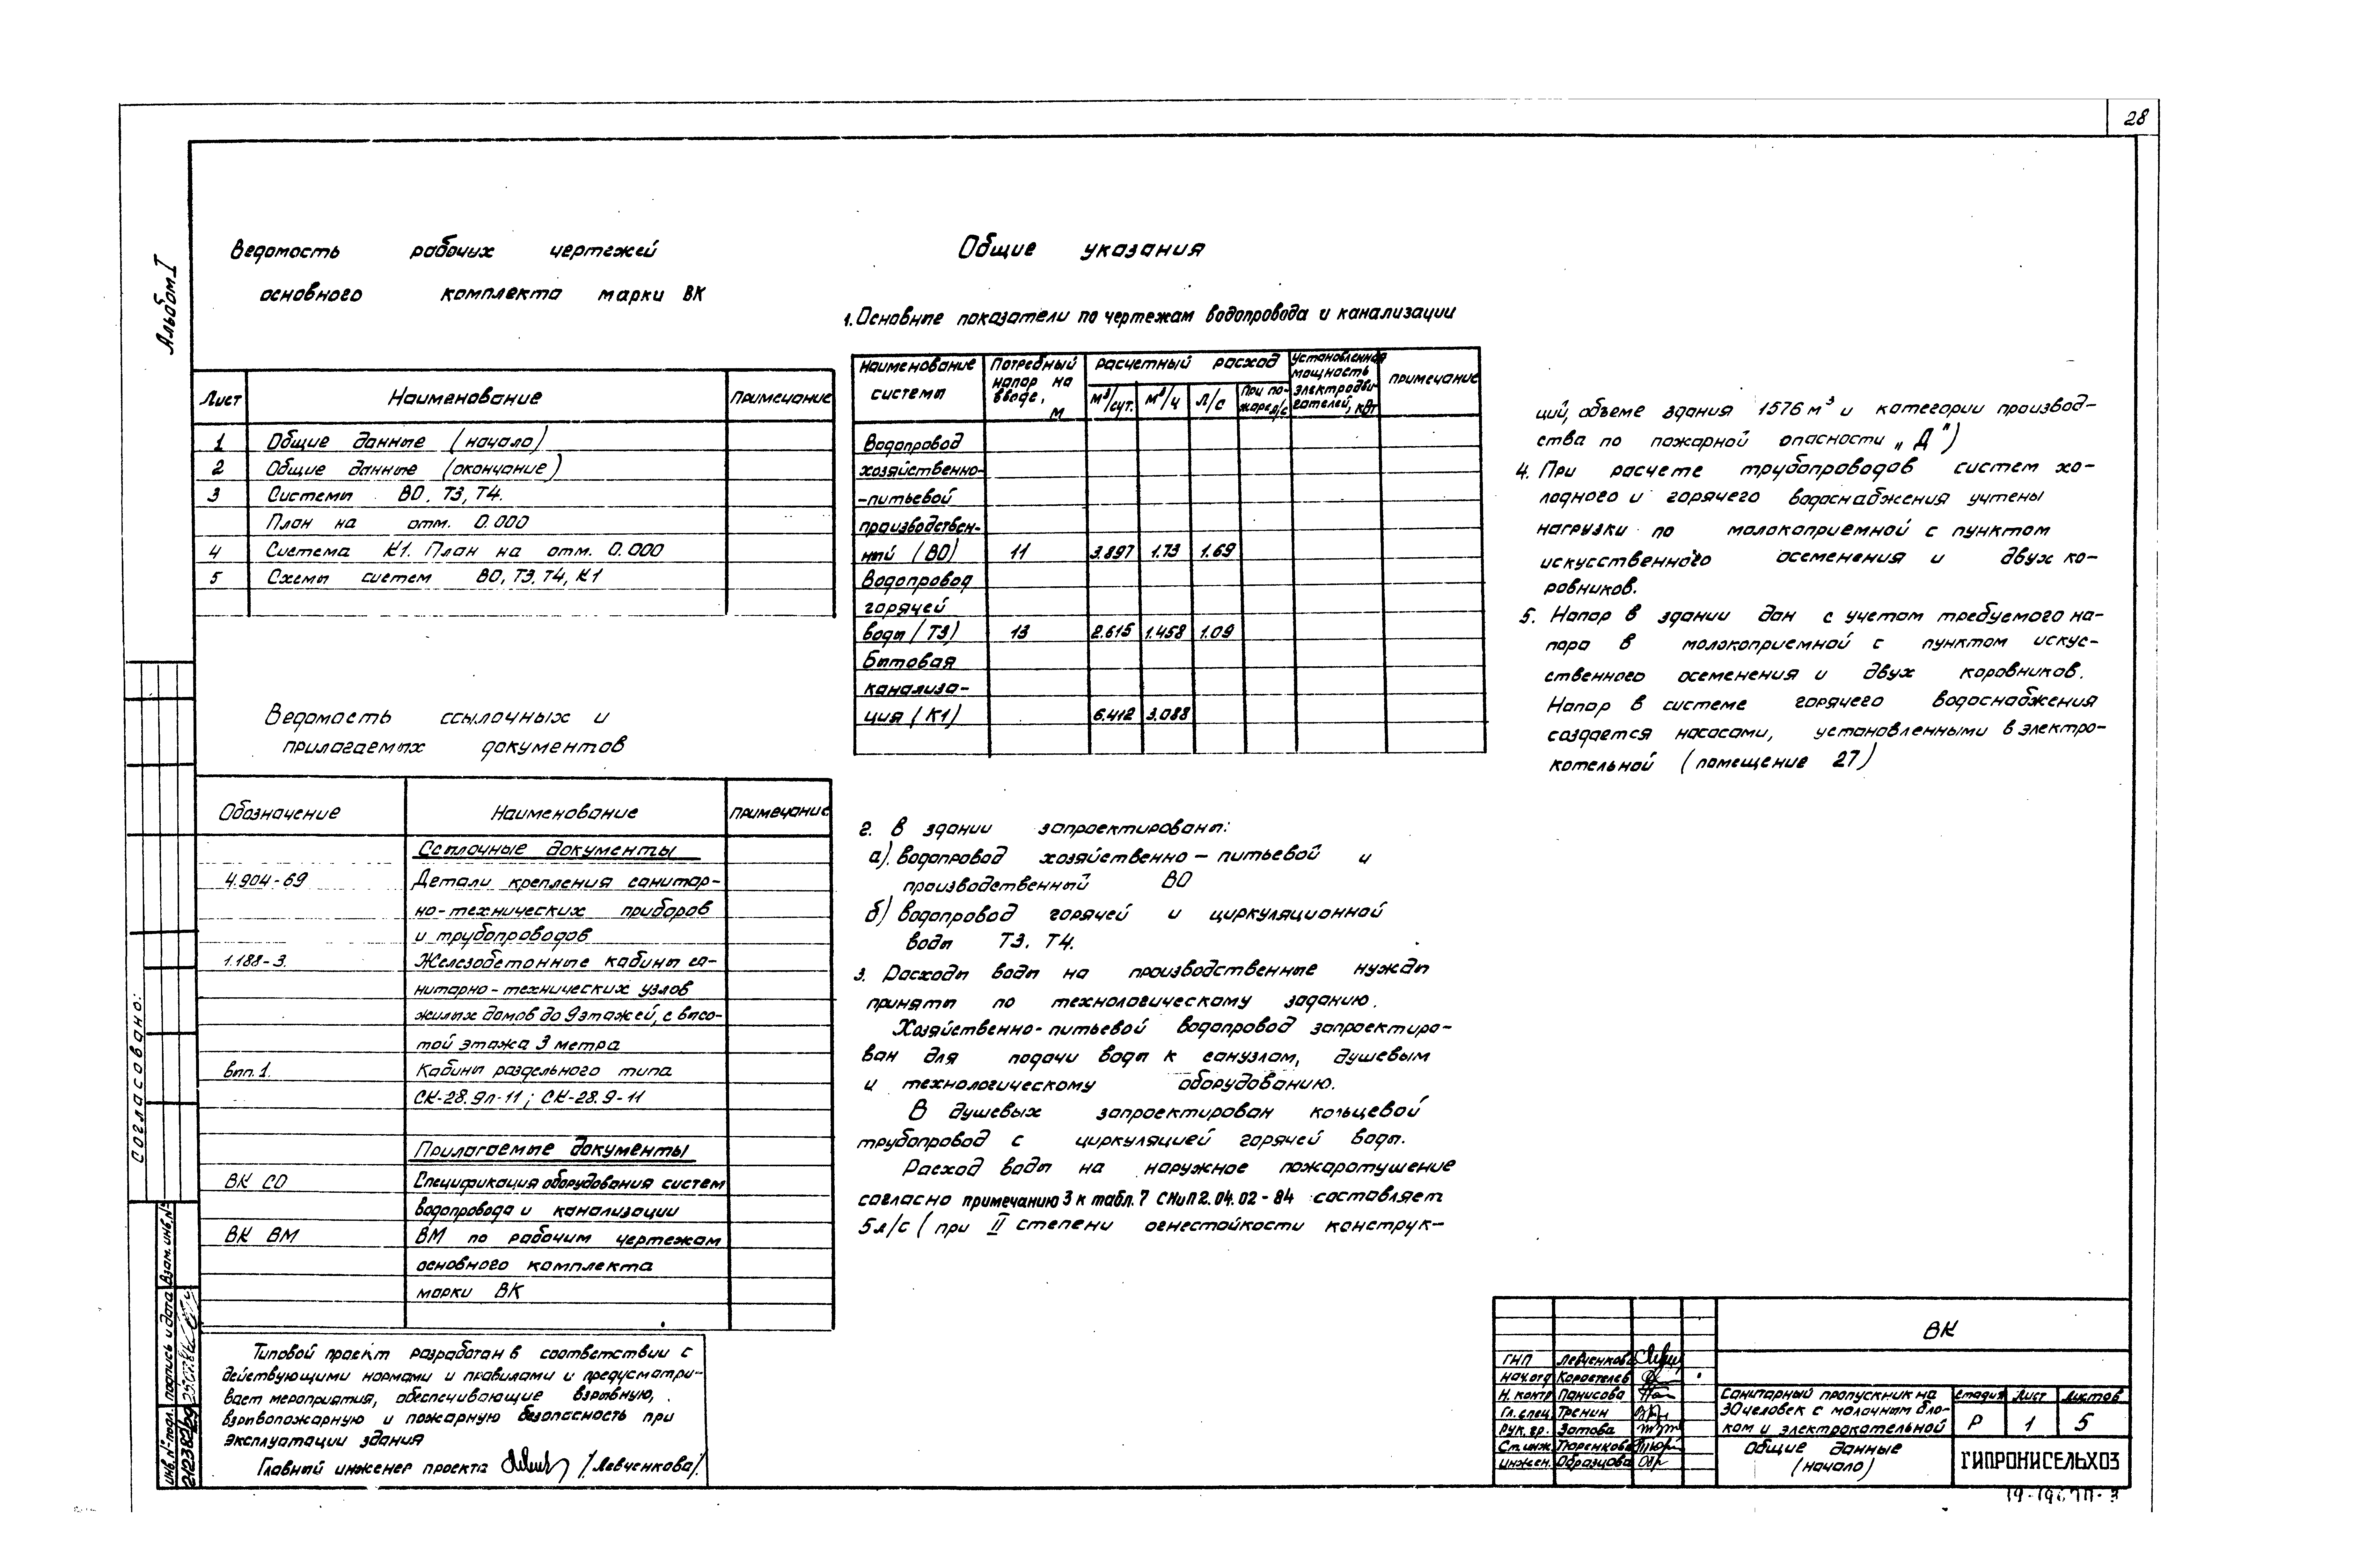 28
Альбом I
Ведомость рабочих чертежей
основного комплекта марки ВК
Лист Наименование Примечание
1 Общие данные (начало)
2 Общие данные (окончание)
3 Системы В0, Т3, Т4.
План на отм. 0.000
4 Система К1. План на отм. 0.000
5 Схемы систем В0, Т3, Т4, К1
Ведомость ссылочных и
прилагаемых документов
Обозначение Наименование Примечание
Ссылочные документы
4.904-69 Детали крепления санитар-
но-технических приборов
и трубопроводов
1.188-3. Железобетонные кабины са-
нитарно-технических узлов
жилых домов до 9 этажей, с высо-
той этажа 3 метра
вып. 1. Кабины раздельного типа
СК-28.9л-11; СК-28.9-11
Прилагаемые документы
ВК СО Спецификация оборудования систем
водопровода и канализации
ВК ВМ ВМ по рабочим чертежам
основного комплекта
марки ВК
Типовой проект разработан в соответствии с
действующими нормами и правилами и предусматри-
вает мероприятия, обеспечивающие взрывную,
взрывопожарную и пожарную безопасность при
эксплуатации здания
Главный инженер проекта /Левченкова/
Общие указания
1. Основные показатели по чертежам водопровода и канализации
Наименование системы
Потребный напор на вводе, м
Расчетный расход
м³/сут. м³/ч л/с При пожаре л/с
Установленная мощность электродвигателей, кВт
Примечание
Водопровод
хозяйственно-
-питьевой
производствен-
ный (В0) 11 3.897 1.73 1.69
Водопровод
горячей
воды (Т3) 13 2.615 1.458 1.09
Бытовая
канализа-
ция (К1) 6.412 3.088
2. В здании запроектированы:
а). водопровод хозяйственно-питьевой и
производственный В0
б) водопровод горячей и циркуляционной
воды Т3. Т4.
3. Расходы воды на производственные нужды
приняты по технологическому заданию.
Хозяйственно-питьевой водопровод запроектиро-
ван для подачи воды к санузлам, душевым
и технологическому оборудованию.
В душевых запроектирован кольцевой
трубопровод с циркуляцией горячей воды.
Расход воды на наружное пожаротушение
согласно примечанию 3 к табл. 7 СНиП 2.04.02-84 составляет
5л/с (при II степени огнестойкости конструк-
ций, объеме здания 1576 м³ и категории производ-
ства по пожарной опасности „Д")
4. При расчете трубопроводов систем хо-
лодного и горячего водоснабжения учтены
нагрузки по молокоприемной с пунктом
искусственного осеменения и двух ко-
ровников.
5. Напор в здании дан с учетом требуемого на-
пора в молокоприемной с пунктом искус-
ственного осеменения и двух коровников.
Напор в системе горячего водоснабжения
создается насосами, установленными в электро-
котельной (помещение 27)
Согласовано:
Взам. инв. №
Подпись и дата
Инв. № подл.
ВК
ГИП Левченкова
Нач. отд Коростелев
Н. контр Панисова
Гл. спец. Тренин
Рук. гр. Зотова
Ст. инж. Тюренкова
Инжен. Образцова
Санитарный пропускник на
30 человек с молочным бло-
ком и электрокотельной
Стадия Лист Листов
Р 1 5
Общие данные
(начало)
ГИПРОНИСЕЛЬХОЗ